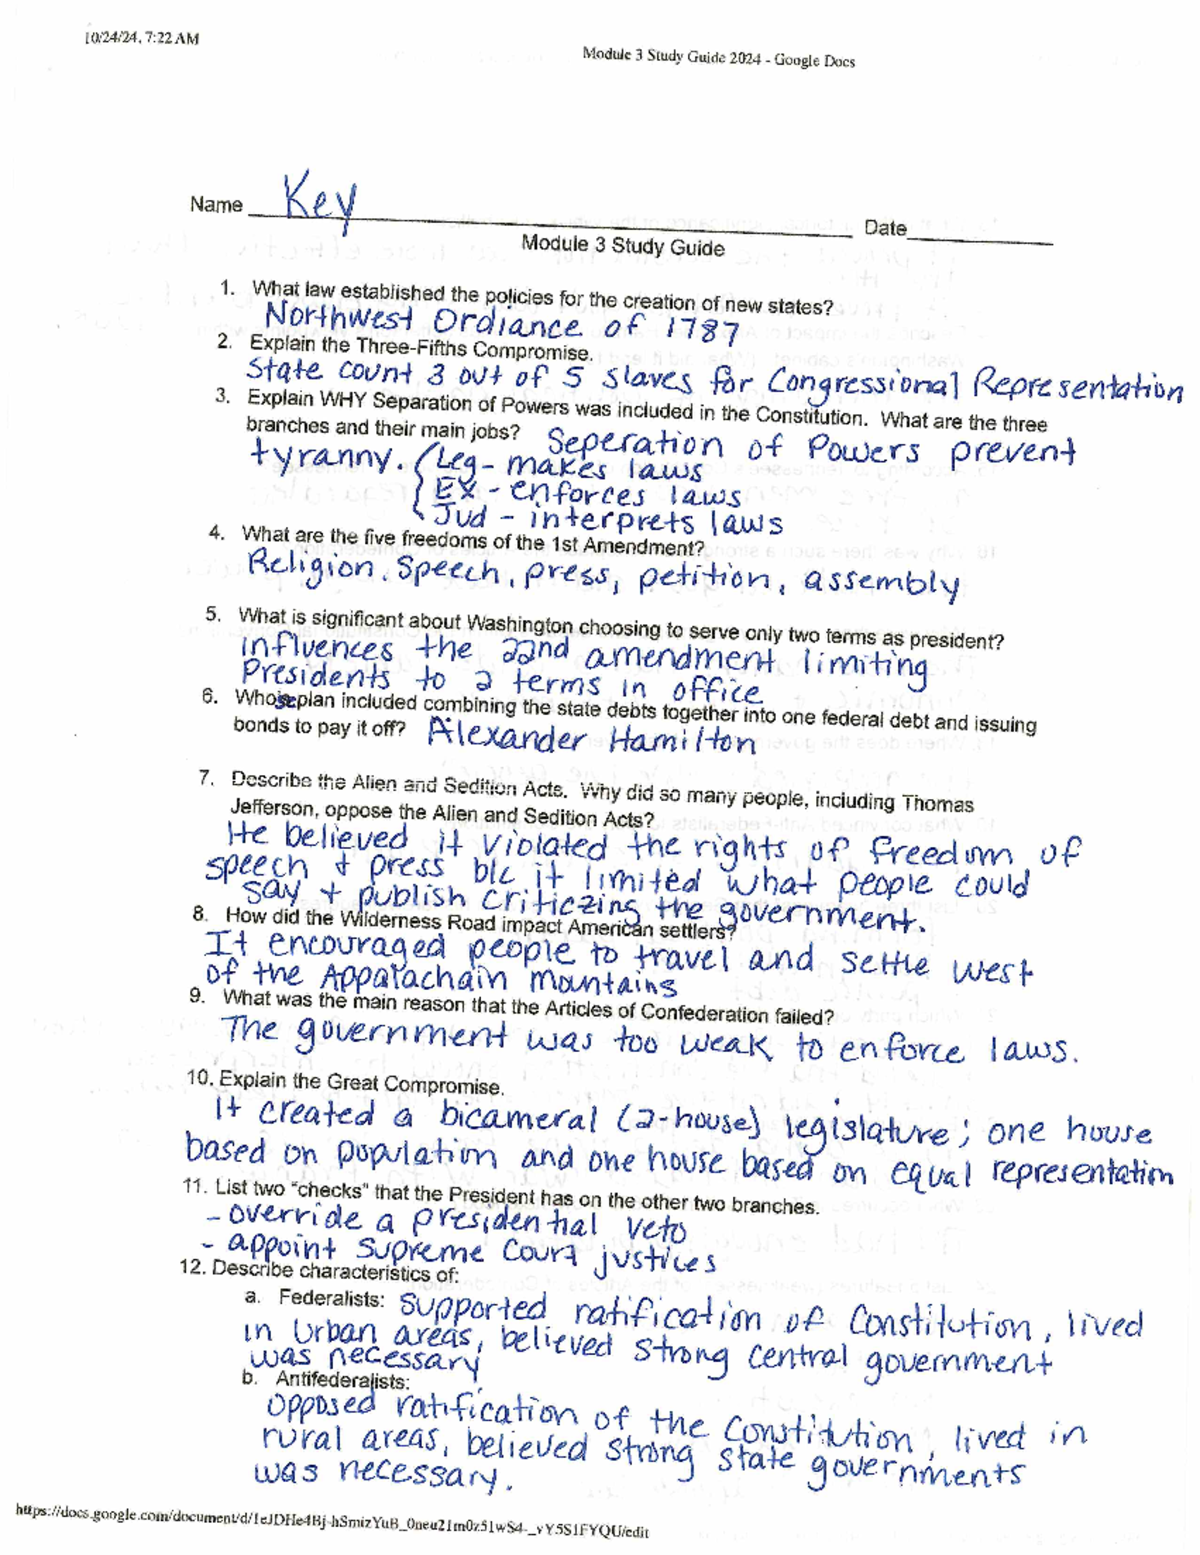 10/24/24, 7:22 AM
Module 3 Study Guide 2024 - Google Docs
Name Key Date
Module 3 Study Guide
1. What law established the policies for the creation of new states?
Northwest Ordiance of 1787
2. Explain the Three-Fifths Compromise.
State count 3 out of 5 slaves for Congressional Representation
3. Explain WHY Separation of Powers was included in the Constitution. What are the three
branches and their main jobs? Seperation of Powers prevent
tyranny. Leg - makes laws
EX - enforces laws
Jud - interprets laws
4. What are the five freedoms of the 1st Amendment?
Religion, Speech, press, petition, assembly
5. What is significant about Washington choosing to serve only two terms as president?
influences the 22nd amendment limiting
Presidents to 2 terms in office
6. Whose plan included combining the state debts together into one federal debt and issuing
bonds to pay it off? Alexander Hamilton
7. Describe the Alien and Sedition Acts. Why did so many people, including Thomas
Jefferson, oppose the Alien and Sedition Acts?
He believed it violated the rights of freedom of
speech + press b/c it limited what people could
say + publish criticzing the government.
8. How did the Wilderness Road impact American settlers?
It encouraged people to travel and settle west
of the Appalachain mountains
9. What was the main reason that the Articles of Confederation failed?
The government was too weak to enforce laws.
10. Explain the Great Compromise.
It created a bicameral (2-house) legislature; one house
based on population and one house based on equal representation
11. List two "checks" that the President has on the other two branches.
- override a presidential veto
- appoint Supreme Court justices
12. Describe characteristics of:
a. Federalists: supported ratification of Constitution, lived
in Urban areas, believed strong central government
was necessary
b. Antifederalists:
opposed ratification of the Constitution, lived in
rural areas, believed strong state governments
was necessary.
https://docs.google.com/document/d/1eJDHe4Bj-hSmizYuB_0neu21m0z51wS4-_vY5S1FYQU/edit